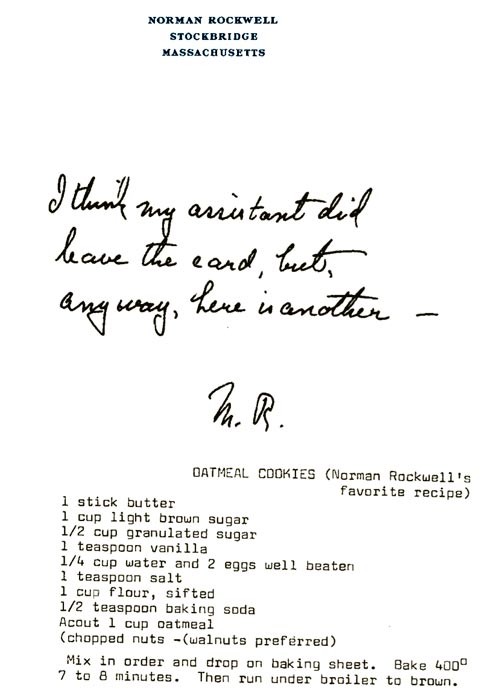 NORMAN ROCKWELL
STOCKBRIDGE
MASSACHUSETTS
I think my assistant did
leave the card, but,
anyway, here is another —
N. R.
OATMEAL COOKIES (Norman Rockwell's
favorite recipe)
1 stick butter
1 cup light brown sugar
1/2 cup granulated sugar
1 teaspoon vanilla
1/4 cup water and 2 eggs well beaten
1 teaspoon salt
1 cup flour, sifted
1/2 teaspoon baking soda
Acout 1 cup oatmeal
(chopped nuts -(walnuts preferred)
Mix in order and drop on baking sheet. Bake 400°
7 to 8 minutes. Then run under broiler to brown.